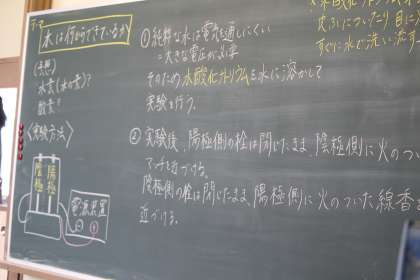 テーマ
水は何からできているか
(予想)
水素(水の素)?
酸素?
〈実験方法〉
陰極
陽極
電源装置
－
＋
①純粋な水は電気を通しにくい
=大きな電圧が必要
そのため水酸化ナトリウムを水に溶かして
実験を行う。
②実験後、陽極側の栓は閉じたまま、陰極側に火のつい
マッチを近づける。
陰極側の栓は閉じたまま、陽極側に火のついた線香を
近づける。
皮ふについたり目に
すぐに水で洗い流す